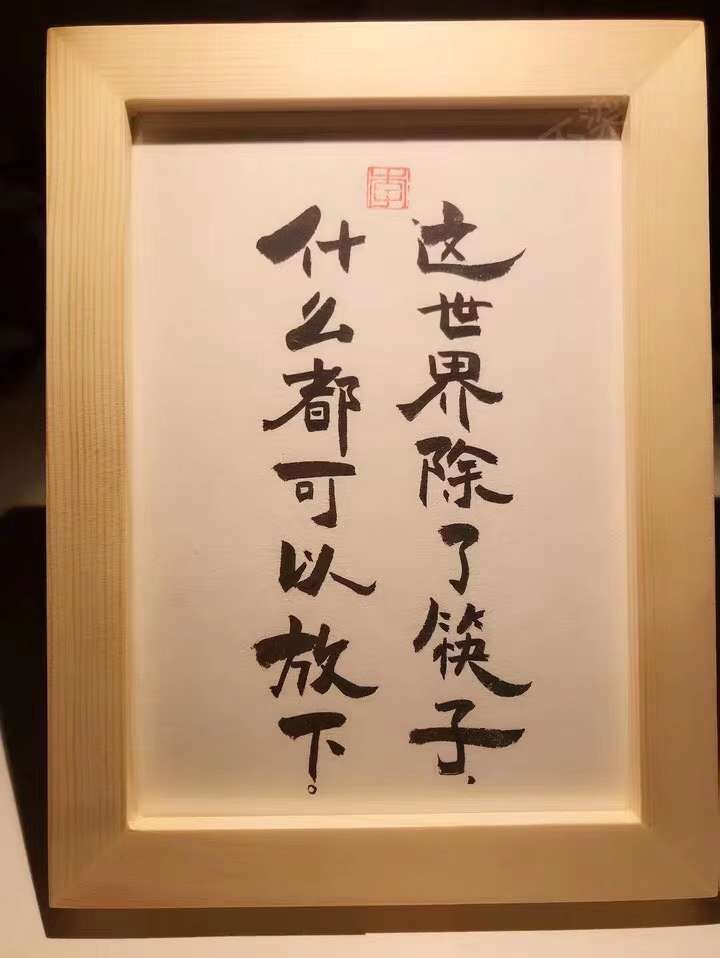 这世界除了筷子、
什么都可以放下。